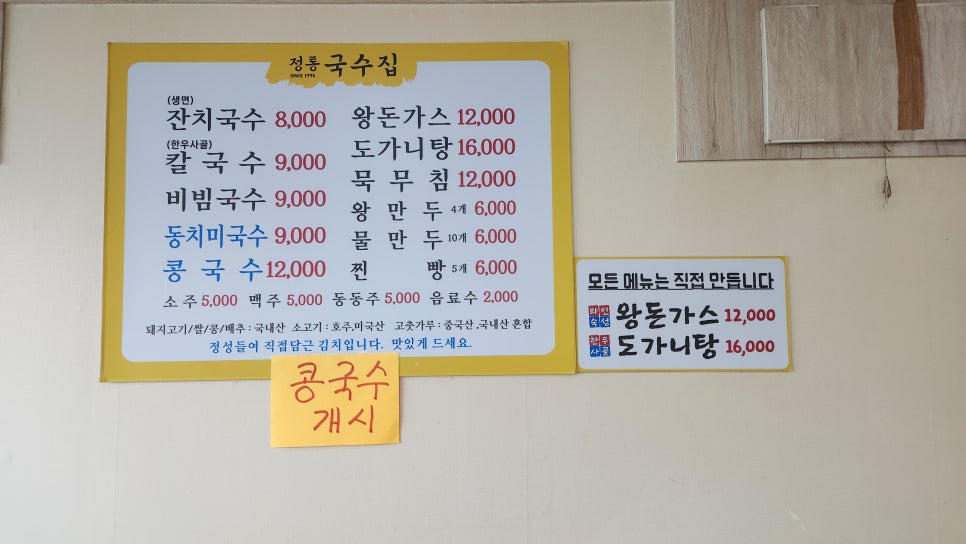 정통 국수집
SINCE 1991
(생면)
잔치국수 8,000
(한우사골)
칼국수 9,000
비빔국수 9,000
동치미국수 9,000
콩국수 12,000
왕돈가스 12,000
도가니탕 16,000
묵무침 12,000
왕만두 4개 6,000
물만두 10개 6,000
찐빵 5개 6,000
소주 5,000 맥주 5,000 동동주 5,000 음료수 2,000
돼지고기/쌀/콩/배추 : 국내산 소고기 : 호주,미국산 고춧가루 : 중국산,국내산 혼합
정성들여 직접담근 김치입니다. 맛있게 드세요.
콩국수
개시
모든 메뉴는 직접 만듭니다
와인숙성 왕돈가스 12,000
한우사골 도가니탕 16,000